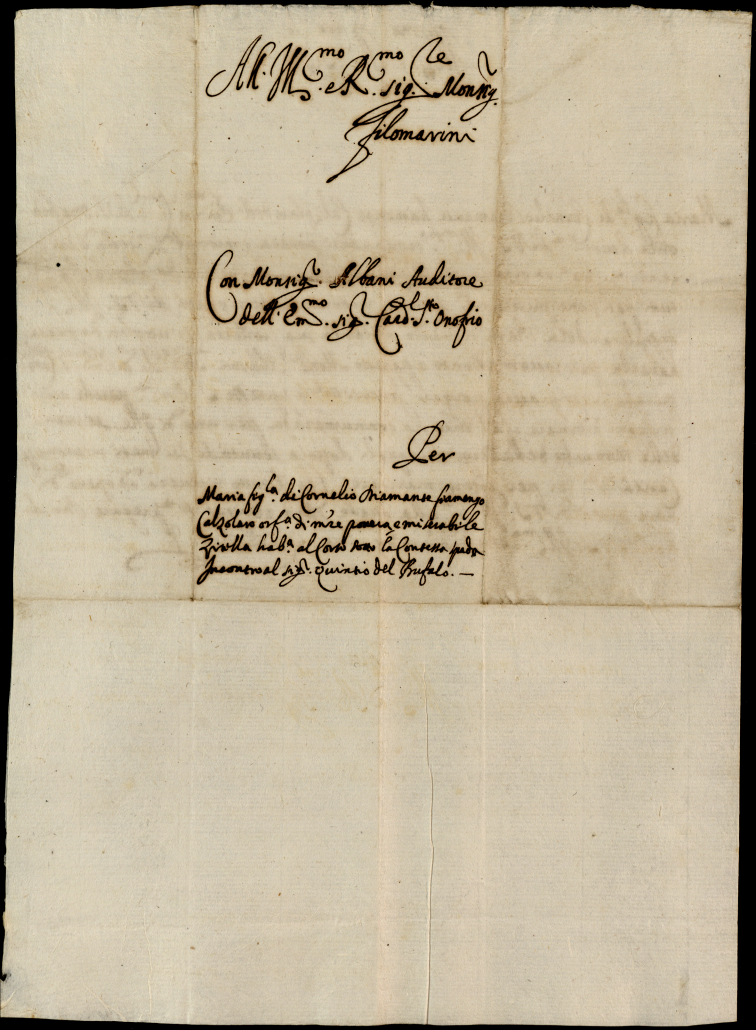 All' Ill^mo. e R^mo. sig.^re Monsig.
Filomarini
Con Monsig.^r Albani Auditore
dell' Em^mo. sig.^r Card.^l S.^to Onofrio
Per
Maria fig^la. di Cornelio Diamante fiamengo
Calzolaro orf^a. di m're povera e miserabile
Zitella hab^a. al Corso sotto la Contessa spada
Incontro al sig^r. Quintio del Bufalo. —